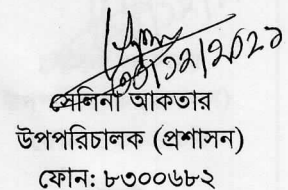 /১২/২০২১
সেলিনা আকতার
উপপরিচালক (প্রশাসন)
ফোন: ৮৩০০৬৮২